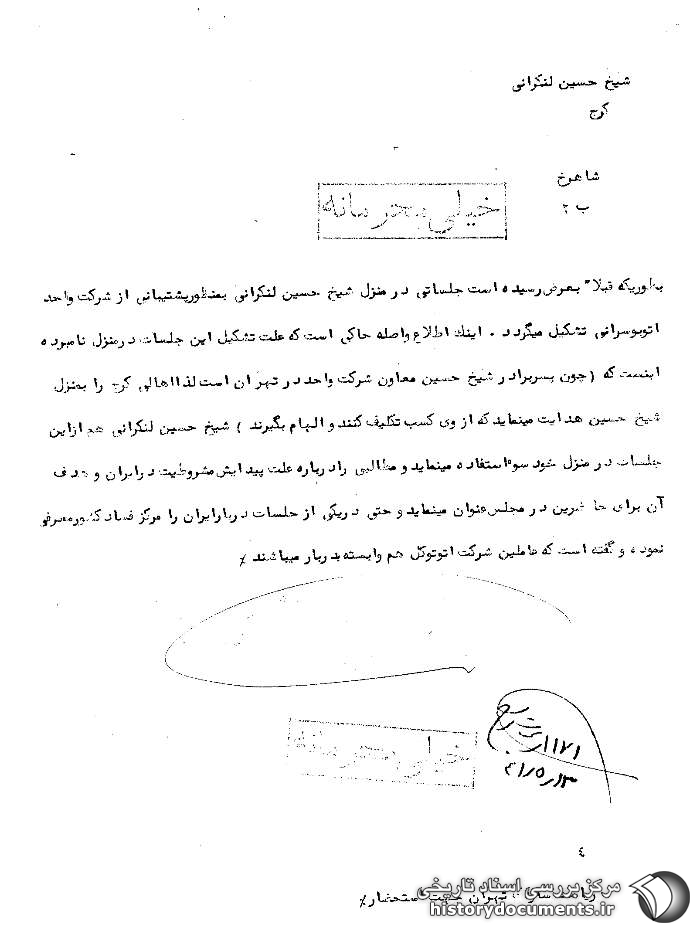 شیخ حسین لنکرانی
کرج
شاهرخ
ب ۲
خیلی محرمانه
بطوریکه قبلا" بعرض رسیده است جلساتی در منزل شیخ حسین لنکرانی بمنظور پشتیبانی از شرکت واحد
اتوبوسرانی تشکیل میگردد . اینک اطلاع واصله حاکی است که علت تشکیل این جلسات در منزل نامبرده
اینست که (چون پسربرادر شیخ حسین معاون شرکت واحد در تهران است لذا اهالی کرج را بمنزل
شیخ حسین هدایت مینماید که از وی کسب تکلیف کنند و الهام بگیرند ) شیخ حسین لنکرانی هم از این
جلسات در منزل خود سو استفاده مینماید و مطالبی را درباره علت پیدایش مشروطیت در ایران و هدف
آن برای حاضرین در مجلس عنوان مینماید و حتی در یکی از جلسات دربار ایران را مرکز فساد کشور معرفی
نموده و گفته است که عاملین شرکت اتوتوکل هم وابسته بدربار میباشند ٪
خیلی محرمانه
٤
تهران جهت استحضار٪
مرکز بررسی اسناد تاریخی
historydocuments.ir